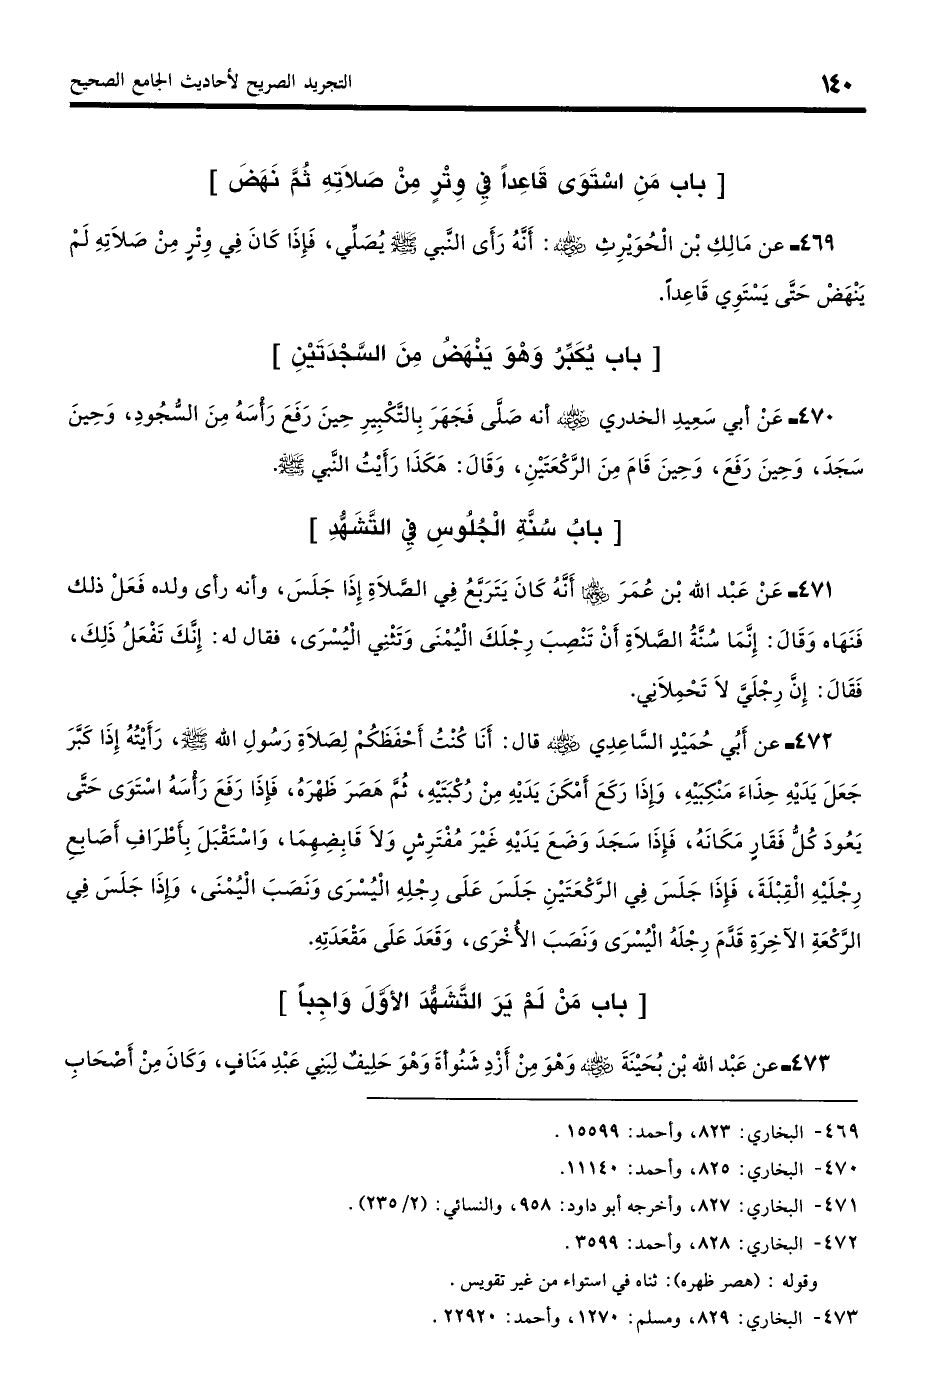 ١٤٠
التجريد الصريح لأحاديث الجامع الصحيح
[ باب مَنِ اسْتَوَى قَاعِداً فِي وِتْرٍ مِنْ صَلاَتِهِ ثُمَّ نَهَضَ ]
٤٦٩ـ عن مَالِكِ بْنِ الْحُوَيْرِثِ ﵁: أَنَّهُ رَأَى النَّبي ﷺ يُصَلِّي، فَإِذَا كَانَ فِي وِتْرٍ مِنْ صَلاَتِهِ لَمْ
يَنْهَضْ حَتَّى يَسْتَوِي قَاعِداً.
[ باب يُكَبِّرُ وَهْوَ يَنْهَضُ مِنَ السَّجْدَتَيْنِ ]
٤٧٠ـ عَنْ أبي سَعِيدِ الخدري ﵁ أنه صَلَّى فَجَهَرَ بِالتَّكْبِيرِ حِينَ رَفَعَ رَأْسَهُ مِنَ السُّجُودِ، وَحِينَ
سَجَدَ، وَحِينَ رَفَعَ، وَحِينَ قَامَ مِنَ الرَّكْعَتَيْنِ، وَقَالَ: هَكَذَا رَأَيْتُ النَّبي ﷺ.
[ بابُ سُنَّةِ الْجُلُوسِ فِي التَّشَهُّدِ ]
٤٧١ـ عَنْ عَبْد الله بْن عُمَرَ ﵄ أَنَّهُ كَانَ يَتَرَبَّعُ فِي الصَّلاَةِ إِذَا جَلَسَ، وأنه رأى ولده فَعَلْ ذلك
فَنَهَاه وَقَالَ: إِنَّمَا سُنَّةُ الصَّلاَةِ أَنْ تَنْصِبَ رِجْلَكَ الْيُمْنَى وَتَثْنِي الْيُسْرَى، فقال له: إِنَّكَ تَفْعَلُ ذَلِكَ،
فَقَالَ: إِنَّ رِجْلَيَّ لاَ تَحْمِلاَنِي.
٤٧٢ـ عن أَبُي حُمَيْدٍ السَّاعِدِي ﵁ قال: أَنَا كُنْتُ أَحْفَظَكُمْ لِصَلاَةِ رَسُولِ الله ﷺ، رَأَيْتُهُ إِذَا كَبَّرَ
جَعَلَ يَدَيْهِ حِذَاءَ مَنْكِبَيْهِ، وَإِذَا رَكَعَ أَمْكَنَ يَدَيْهِ مِنْ رُكْبَتَيْهِ، ثُمَّ هَصَرَ ظَهْرَهُ، فَإِذَا رَفَعَ رَأْسَهُ اسْتَوَى حَتَّى
يَعُودَ كُلُّ فَقَارٍ مَكَانَهُ، فَإِذَا سَجَدَ وَضَعَ يَدَيْهِ غَيْرَ مُفْتَرِشٍ وَلاَ قَابِضِهِمَا، وَاسْتَقْبَلَ بِأَطْرَافِ أَصَابِعِ
رِجْلَيْهِ الْقِبْلَةَ، فَإِذَا جَلَسَ فِي الرَّكْعَتَيْنِ جَلَسَ عَلَى رِجْلِهِ الْيُسْرَى وَنَصَبَ الْيُمْنَى، وَإِذَا جَلَسَ فِي
الرَّكْعَةِ الآخِرَةِ قَدَّمَ رِجْلَهُ الْيُسْرَى وَنَصَبَ الأُخْرَى، وَقَعَدَ عَلَى مَقْعَدَتِهِ.
[ باب مَنْ لَمْ يَرَ التَّشَهُّدَ الأَوَّلَ وَاجِباً ]
٤٧٣ـ عن عَبْد الله بْن بُحَيْنَةَ ﵁ وَهْوَ مِنْ أَزْدِ شَنُوأَةَ وَهْوَ حَلِيفٌ لِبَنِي عَبْدِ مَنَافٍ، وَكَانَ مِنْ أَصْحَابِ
٤٦٩- البخاري: ٨٢٣، وأحمد: ١٥٥٩٩ .
٤٧٠- البخاري: ٨٢٥، وأحمد: ١١١٤٠.
٤٧١- البخاري: ٨٢٧، وأخرجه أبو داود: ٩٥٨، والنسائي: (٢/ ٢٣٥) .
٤٧٢- البخاري: ٨٢٨، وأحمد: ٣٥٩٩ .
وقوله : (هصر ظهره): ثناه في استواء من غير تقويس .
٤٧٣- البخاري: ٨٢٩، ومسلم: ١٢٧٠، وأحمد: ٢٢٩٢٠ .